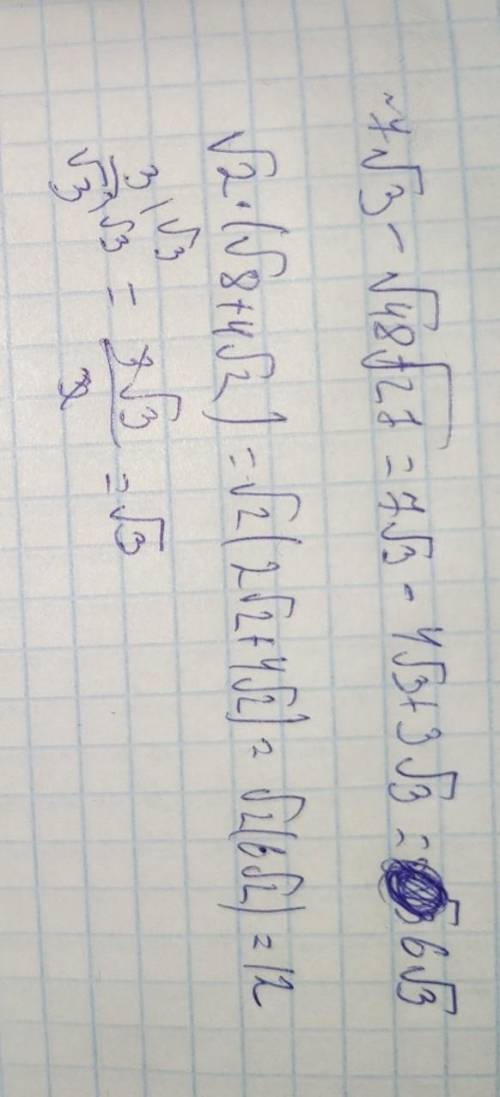 7√3 - √48+√27 = 7√3 - 4√3+3√3 = 6√3
√2·(√8+4√2) = √2(2√2+4√2) = √2(6√2) = 12
3\√3/√3\√3 = 3√3/3 = √3